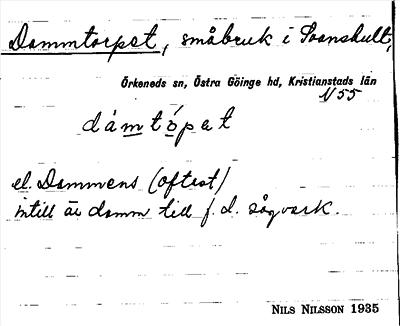 Dammtorpet, småbruk i Svanshult,
Örkeneds sn, Östra Göinge hd, Kristianstads län
N 55
dámtòpet
el. Dammens (oftest)
intill är damm till f.d. sågverk.
NILS NILSSON 1935